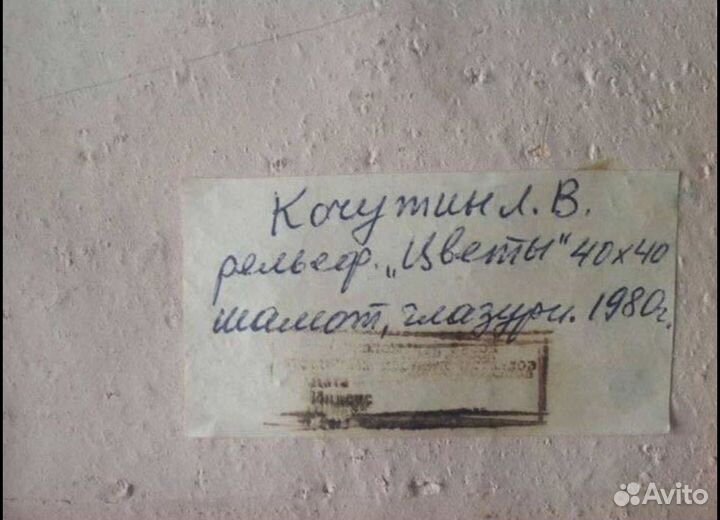 Кочутин Л. В.
рельеф. „Цветы“ 40х40
шамот, глазури. 1980г.
Дата
Индекс
Avito